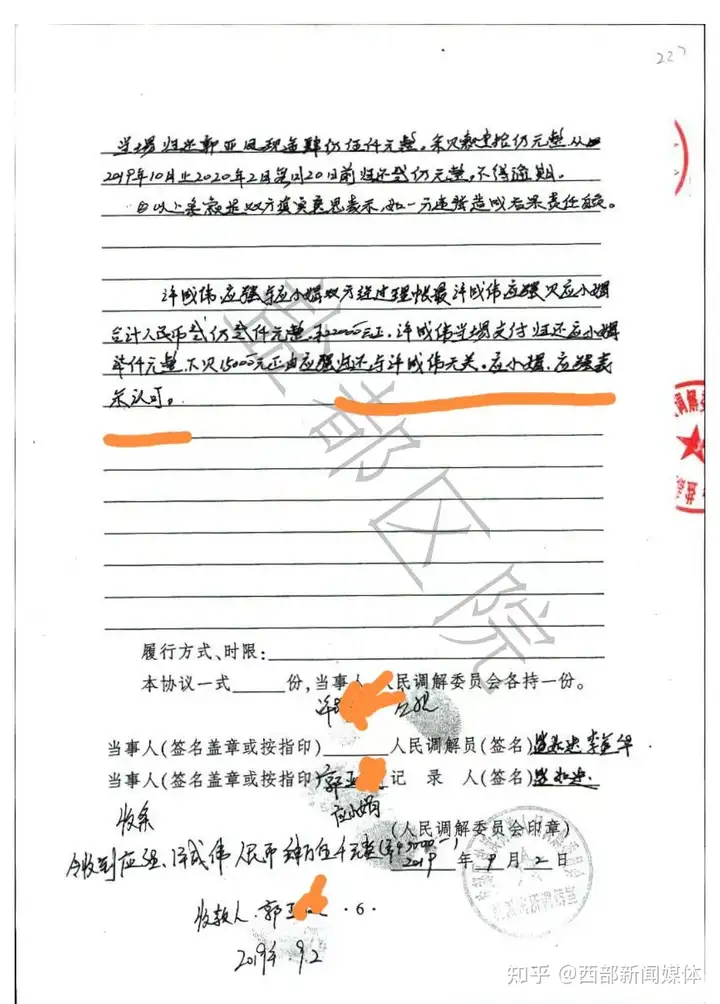 227
当场归还郭亚凤现金肆仿伍仟元整。余欠款壹拾仿元整从
2019年10月止2020年2月每月20日前归还贰仿元整,不得逾期。
以上条款是双方真实意思表示,如一方违约造成后果责任自负。
许成伟、应强与应小娟双方经过理帐最许成伟应强欠应小娟
合计人民币贰仿贰仟元整,¥22000元正,许成伟当场支付归还应小娟
柒仟元整,下欠15000元正由应强归还与许成伟无关。应小娟、应强表
示认可。
盐都区院
履行方式、时限:
本协议一式 份,当事人 人民调解委员会各持一份。
当事人(签名盖章或按指印) 人民调解员(签名)
当事人(签名盖章或按指印 郭亚 记 录 人(签名)
应小娟
收条
(人民调解委员会印章)
今收到应强、许成伟人民币肆万伍千元整(¥45000一)
2019 年 9 月 2 日
收款人:郭亚
·6·
2019年.9.2
知乎 @西部新闻媒体